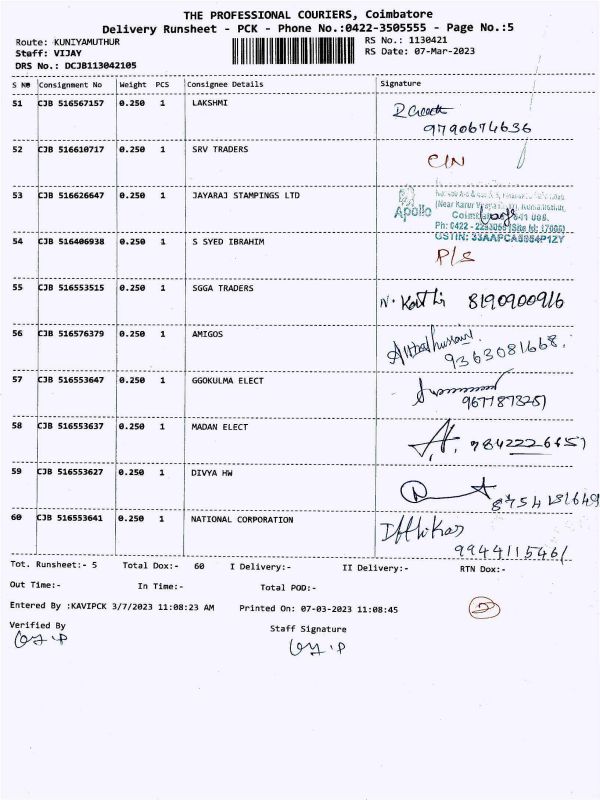 THE PROFESSIONAL COURIERS, Coimbatore
Delivery Runsheet - PCK - Phone No.:0422-3505555 - Page No.:5
Route: KUNIYAMUTHUR
RS No.: 1130421
Staff: VIJAY
RS Date: 07-Mar-2023
DRS No.: DCJB113042105
S NO Consignment No Weight PCS Consignee Details Signature
51 CJB 516567157 0.250 1 LAKSHMI
9790674636
52 CJB 516610717 0.250 1 SRV TRADERS
53 CJB 516626647 0.250 1 JAYARAJ STAMPINGS LTD
Apollo
54 CJB 516406938 0.250 1 S SYED IBRAHIM P/S
55 CJB 516553515 0.250 1 SGGA TRADERS 8190900916
56 CJB 516576379 0.250 1 AMIGOS
9363081668
57 CJB 516553647 0.250 1 GGOKULMA ELECT
58 CJB 516553637 0.250 1 MADAN ELECT
59 CJB 516553627 0.250 1 DIVYA HW
60 CJB 516553641 0.250 1 NATIONAL CORPORATION
Tot. Runsheet:- 5 Total Dox:- 60 I Delivery:- II Delivery:- RTN Dox:-
Out Time:- In Time:- Total POD:-
Entered By :KAVIPCK 3/7/2023 11:08:23 AM Printed On: 07-03-2023 11:08:45
Verified By
Staff Signature